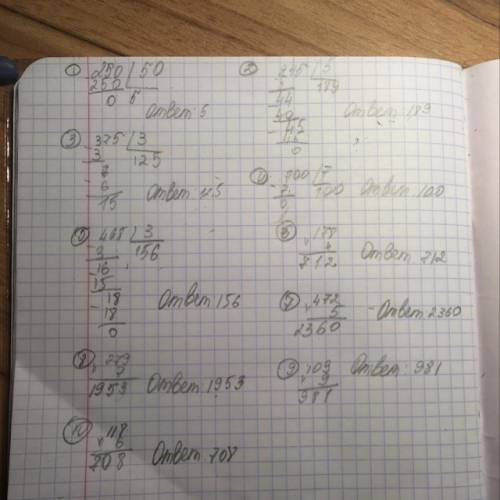 ① 250 | 50
250 5
0
Ответ 5
② 945 | 5
5 189
44
40
45
45
0
Ответ 189
③ 375 | 3
3 125
7
6
15
Ответ 125
④ 700 | 7
7 100
0
Ответ 100
⑤ 468 | 3
3 156
16
15
18
18
0
Ответ 156
⑥ 178
4
712
Ответ 712
⑦ 472
5
2360
Ответ 2360
⑧ 279
7
1953
Ответ 1953
⑨ 109
9
981
Ответ 981
⑩ 118
6
708
Ответ 708